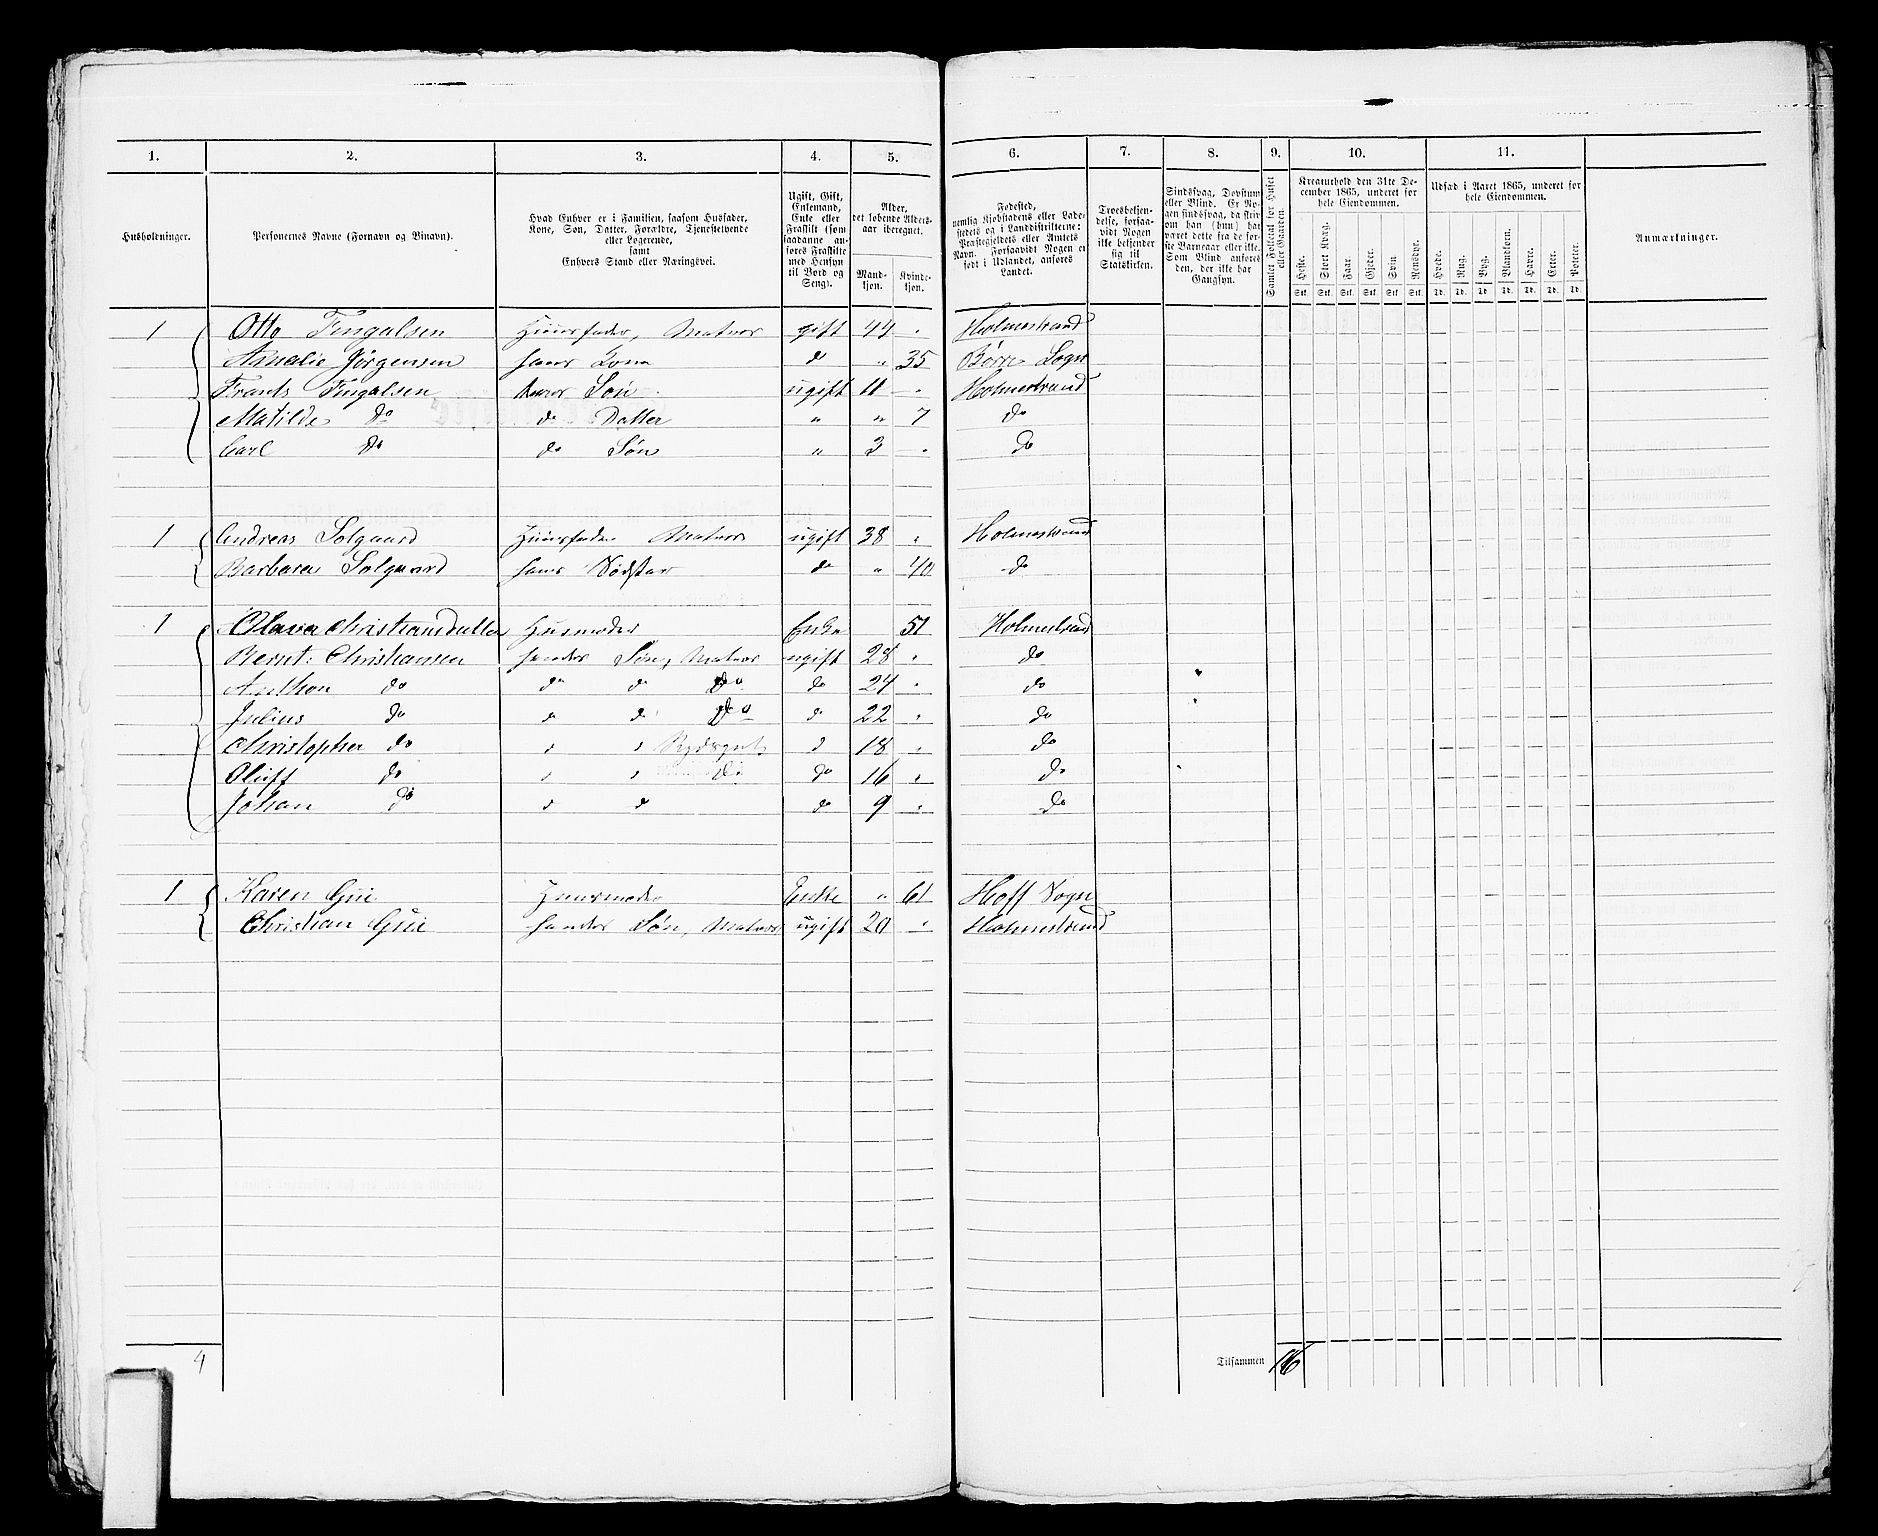 1. 2. 3. 4. 5. 6. 7. 8. 9. 10. 11.
Husholdninger.
Personernes Navne (Fornavn og Binavn).
Hvad Enhver er i Familien, saasom Husfader,
Kone, Søn, Datter, Forældre, Tjenestetyende
eller Logerende,
samt
Enhvers Stand eller Næringsvei.
Ugift, Gift,
Enkemand,
Enke eller
Fraskilt (som
saadanne an-
føres Fraskilte
med Hensyn
til Bord og
Seng).
Alder,
det løbende Alders-
aar iberegnet.
Mand-
kjøn.
Kvinde-
kjøn.
Fødested,
nemlig Kjøbstadens eller Lade-
stedets og i Landdistrikterne:
Præstegjeldets eller Amtets
Navn. Forsaavidt Nogen er
født i Udlandet, anføres
Landet.
Troesbekjen-
delse, forsaa-
vidt Nogen
ikke bekjender
sig til
Statskirken.
Sindssvag, Døvstum
eller Blind. Er No-
gen sindssvag, da skriv
om han (hun) har
været dette fra de før-
ste Barneaar eller ikke.
Som Blind anføres
den, der ikke har
Gangsyn.
Samlet Folketal for Huset
eller Gaarden.
Kreaturhold den 31te De-
cember 1865, underet for
hele Eiendommen.
Heste. Stort Kvæg. Faar. Gjeder. Svin. Rensdyr.
Stk. Stk. Stk. Stk. Stk. Stk.
Udsæd i Aaret 1865, underet for
hele Eiendommen.
Hvede. Rug. Byg. Blandkorn. Havre. Erter. Poteter.
Td. Td. Td. Td. Td. Td. Td.
Anmærkninger.
1 Otto Fingalsen Huusfader, Matros gift 44 " Holmestrand
Amalie Jørgensen hans Kone do " 35 Børre Sogn
Frants Fingalsen hans Søn ugift 11 " Holmestrand
Matilde do do Datter " " 7 do
Carl do do Søn " 3 " do
1 Andreas Solgaard Huusfader Matros ugift 38 " Holmestrand
Barbara Solgaard hans Södster do " 40 do
1 Olava Christiansdatter Husmoder Enke 51 Holmestrand
Bernt Christiansen hendes Søn, Matros ugift 28 " do
Anthon do do do do do 24 " do
Julius do do do do do 22 " do
Christopher do do do do 18 " do
Oluff do do do do do 16 " do
Johan do do do do 9 " do
1 Karen Gui Huusmoder Enke " 61 Hoff Sogn
Christian Gui hendes Søn, Matros ugift 20 " Holmestrand
4 Tilsammen 16